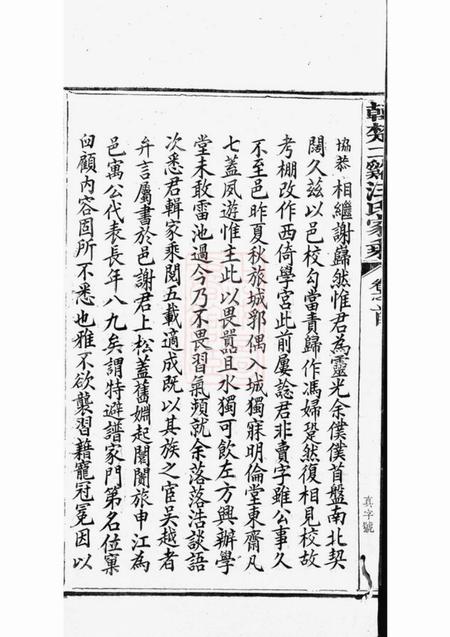 韓楚二谿汪氏家乘 卷之首
協恭相繼謝巋然惟君為靈光余僕僕首盤南北契
闊久兹以邑校勾當責歸作馮婦跫然復相見校故
考棚改作西倚學宮此前屢諗君非賣字雖公事久
不至邑昨夏秋旅城郭偶入城獨寐明倫堂東齋凡
七蓋夙遊惟主此以畏囂且水獨可飲左方興辦學
堂未敢雷池過今乃不畏習氣頻就余落落活談語
次悉君輯家乘閱五載適成既以其族之宦吳越者
弁言屬書於邑謝君上松蓋舊婣起闇闇旅申江為
邑寓公代表長年八九矣謂特避譜家門第名位窠
臼顧內容固所不悉也雅不欲襲習藉寵冠冕因以
真字號